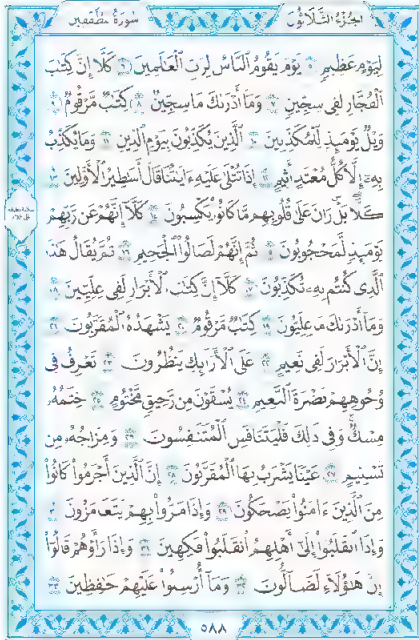 سُورَةُ مُطَفِّفِين
الجُزءُ الثَّلَاثُونَ
لِيَوْمٍ عَظِيمٍ ٥ يَوْمَ يَقُومُ ٱلنَّاسُ لِرَبِّ ٱلْعَٰلَمِينَ ٦ كَلَّآ إِنَّ كِتَٰبَ
ٱلْفُجَّارِ لَفِى سِجِّينٍ ٧ وَمَآ أَدْرَىٰكَ مَا سِجِّينٌ ٨ كِتَٰبٌ مَّرْقُومٌ ٩
وَيْلٌ يَوْمَئِذٍ لِّلْمُكَذِّبِينَ ١٠ ٱلَّذِينَ يُكَذِّبُونَ بِيَوْمِ ٱلدِّينِ ١١ وَمَا يُكَذِّبُ
بِهِۦٓ إِلَّا كُلُّ مُعْتَدٍ أَثِيمٍ ١٢ إِذَا تُتْلَىٰ عَلَيْهِ ءَايَٰتُنَا قَالَ أَسَٰطِيرُ ٱلْأَوَّلِينَ ١٣
كَلَّا بَلْ رَانَ عَلَىٰ قُلُوبِهِم مَّا كَانُوا۟ يَكْسِبُونَ ١٤ كَلَّآ إِنَّهُمْ عَن رَّبِّهِمْ
يَوْمَئِذٍ لَّمَحْجُوبُونَ ١٥ ثُمَّ إِنَّهُمْ لَصَالُوا۟ ٱلْجَحِيمِ ١٦ ثُمَّ يُقَالُ هَٰذَا
ٱلَّذِى كُنتُم بِهِۦ تُكَذِّبُونَ ١٧ كَلَّآ إِنَّ كِتَٰبَ ٱلْأَبْرَارِ لَفِى عِلِّيِّينَ ١٨
وَمَآ أَدْرَىٰكَ مَا عِلِّيُّونَ ١٩ كِتَٰبٌ مَّرْقُومٌ ٢٠ يَشْهَدُهُ ٱلْمُقَرَّبُونَ ٢١
إِنَّ ٱلْأَبْرَارَ لَفِى نَعِيمٍ ٢٢ عَلَى ٱلْأَرَآئِكِ يَنظُرُونَ ٢٣ تَعْرِفُ فِى
وُجُوهِهِمْ نَضْرَةَ ٱلنَّعِيمِ ٢٤ يُسْقَوْنَ مِن رَّحِيقٍ مَّخْتُومٍ ٢٥ خِتَٰمُهُۥ
مِسْكٌ وَفِى ذَٰلِكَ فَلْيَتَنَافَسِ ٱلْمُتَنَٰفِسُونَ ٢٦ وَمِزَاجُهُۥ مِن
تَسْنِيمٍ ٢٧ عَيْنًا يَشْرَبُ بِهَا ٱلْمُقَرَّبُونَ ٢٨ إِنَّ ٱلَّذِينَ أَجْرَمُوا۟ كَانُوا۟
مِنَ ٱلَّذِينَ ءَامَنُوا۟ يَضْحَكُونَ ٢٩ وَإِذَا مَرُّوا۟ بِهِمْ يَتَغَامَزُونَ ٣٠
وَإِذَا ٱنقَلَبُوٓا۟ إِلَىٰٓ أَهْلِهِمُ ٱنقَلَبُوا۟ فَكِهِينَ ٣١ وَإِذَا رَأَوْهُمْ قَالُوٓا۟
إِنَّ هَٰٓؤُلَآءِ لَضَآلُّونَ ٣٢ وَمَآ أُرْسِلُوا۟ عَلَيْهِمْ حَٰفِظِينَ ٣٣
٥٨٨